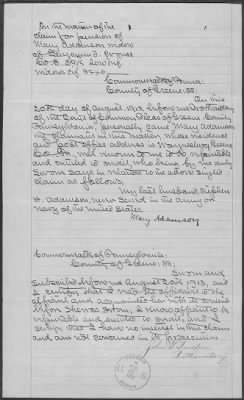 In the matter of the
claim for pension of
Mary Adamson widow
of Benjamin F.
Widows Ctf 8446.
Commonwealth of Penna.
County of Greene: SS;
On this
20th day of August, 1913, before me Prothonotary
of the Court of Common Pleas of Greene County
Pennsylvania, personally came Mary Adamson
the claimant in this matter, whose residence
and post office address is Waynesburg, Greene
Co. well known to me to be reputable
and entitled to credit, who being by me duly
sworn says in relation to the above
claim as follows:
My late husband, Stephen
H. Adamson, never served in the army or
navy of the United States.
Mary Adamson
Commonwealth of Pennsylvania:
County of Greene: SS;
Sworn and
subscribed before me August 20th 1913, and
I certify that I read the affidavit to the
affiant and acquainted her with its contents
before she I know affiant to be
reputable and entitled to credit, and I
certify that I have no interest in this claim
and am not concerned in its prosecution.
Prothonotary